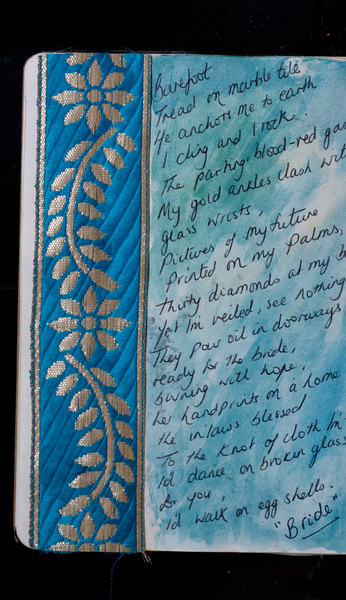 Barefoot
Tread on marble tile
He anchors me to earth
I cling and I rock.
The parting blood-red
My gold ankles clash
glass wrists,
Pictures of my future
Printed on my Palms,
thirty diamonds at my
Yet I'm veiled, see nothing
They pour oil in doorways
ready for the bride,
burning with hope,
her handprints on a home
the in-laws blessed
To the knot of cloth
I'd dance on broken glass
for you,
I'd walk on egg shells.
"Bride"